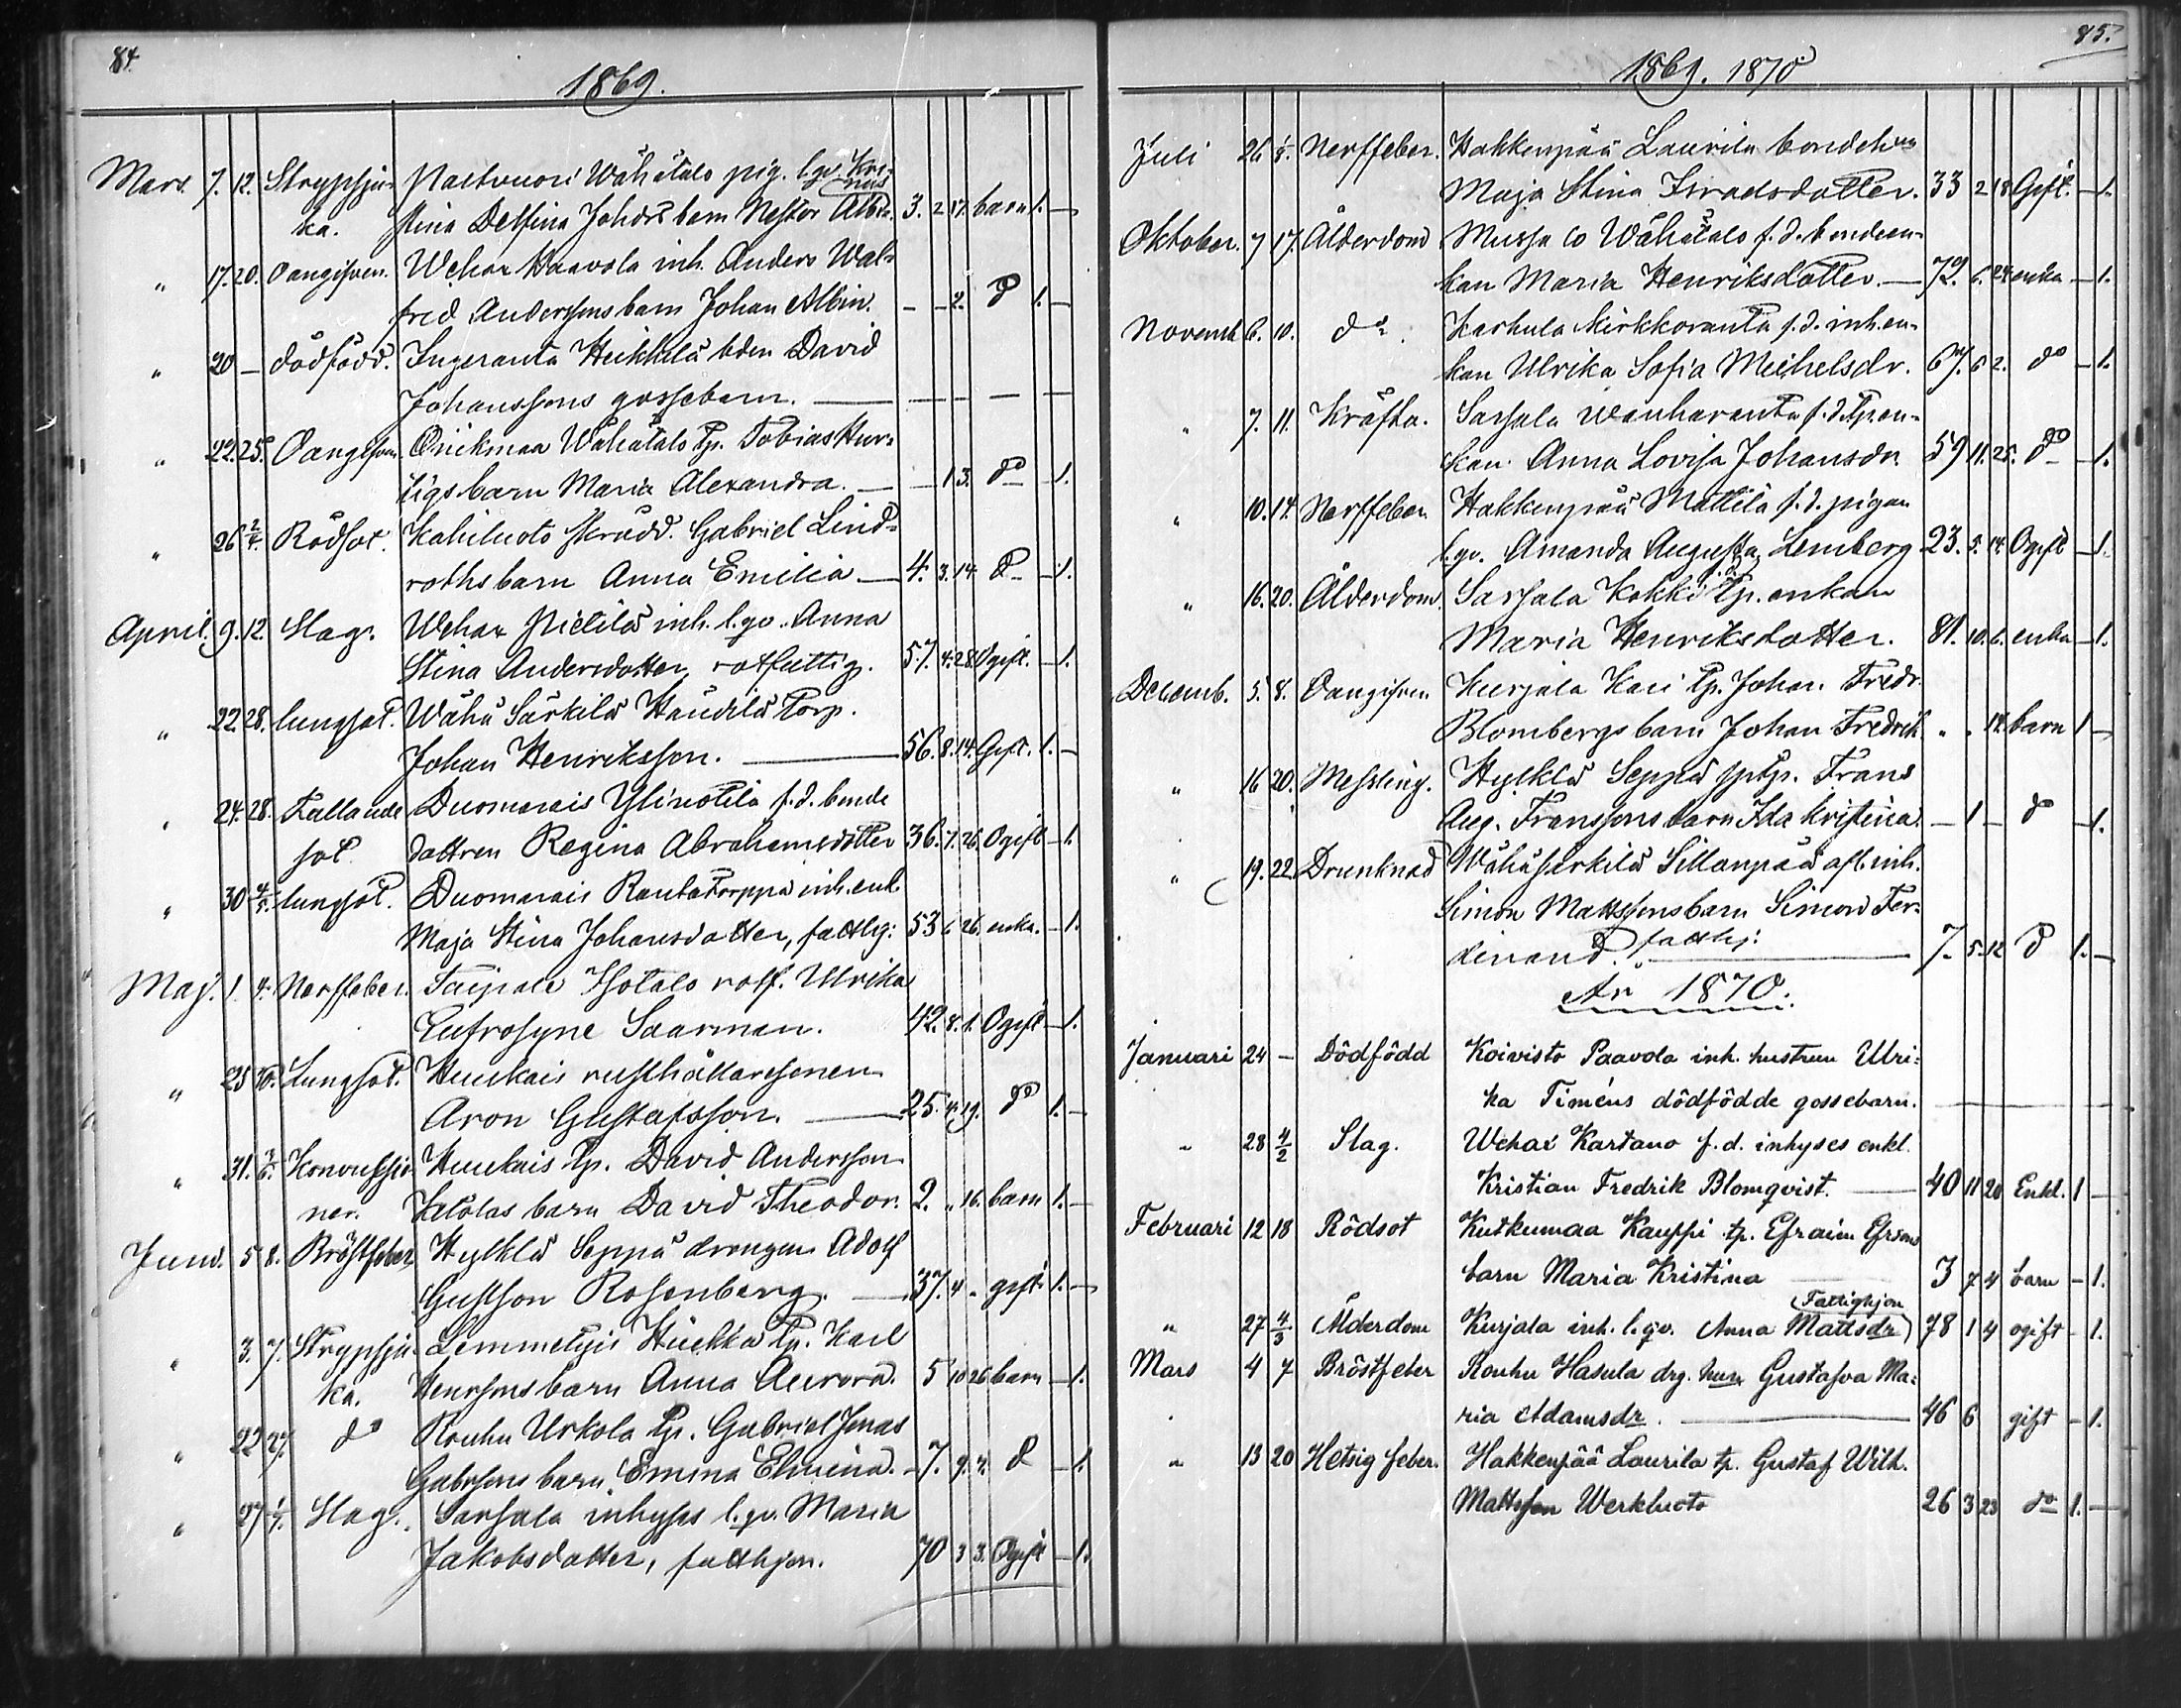 84.
1869.
Mars. 7. 12. Strypsju- Wähätalo pig. l.qv. Kri-
ka. stina Delfina Johdrs barn Nestor Albi- nus 3. 2 17. barn 1. —
" 17. 20. Oangifven. Wehax Paavola inh. Anders Wal-
fred Anderssons barn Johan Albin. — — 2. do 1. —
" 20 — dödfödd. Ingeranta Heikkilä bden David
Johanssons gossebarn. — — — — —
" 22. 25. Oangifven Wähätalo tp. Tobias
barn Maria Alexandra. — — 1 3. do — 1.
" 26 2/4. Rödsot. Kahiluoto skrädd. Gabriel Lind-
roths barn Anna Emilia — 4. 3. 14 do — 1.
April. 9. 12. Slag. Wehax Pietilä inh. l.qv. Anna
Stina Andersdotter, rotfattig. 57. 4. 28. Ogift. — 1.
" 22. 28. lungsot. Wähä Särkilä Torp.
Johan Henriksson. — 56. 8. 14. Gift. 1. —
" 24. 28. Fallande Duomarais Ylinotila f.d. bonde
sot. dottren Regina Abrahamsdotter 36. 7. 26. Ogift — 1.
" 30 4/5. lungsot. Duomarais Rautatorppa inh. enk.
Maja Stina Johansdotter, fattig: 53 6 26. enka. — 1.
Maj. 1. 4. Nerffeber. Taipale Isotalo rotf. Ulrika
Eufrosyne Saarman. 42. 8. 1. Ogift — 1.
" 25 30. Lungsot. Huukais rusthållaresonen
Aron Gustafsson. — 25. 4. 19. do 1. —
" 31. 3/6. Konvulsio- Huukais tp. David Andersson
ner. barn David Theodor. 2. " 16. barn 1. —
Juni. 5 8. Bröstfeber Hylkilä Seppä drengen Adolf
Gustson Rosenberg. — 37. 4 " gift 1. —
" 3. 7. Strypsju- Lemmetyis tp. Karl
ka. Henrsons barn Anna Aurora. 5 10 26 barn — 1.
" 22 27. do Rouhu Uskola tp. Gabriel Jonas
Gabrsons barn Emma Elmina. — 7. 9. 4. do — 1.
" 27 1/7. Slag. Sarsala inhyses l.qv. Maria
Jakobsdotter, fattighjon. 70 3 3. Ogift — 1.
85.
1869. 1870
Juli 26 1/8. Nerffeber. Hakkenpää Laurila bondehun
Maja Stina Isradsdotter. 33 2 18 Gift. — 1.
Oktober. 7 17. Ålderdom Wähätalo f.d. bondeen-
kan Maria Henriksdotter. — 72. 6. 24 enka — 1.
Novemb. 6. 10. do Karhula Kirkkoranta f.d. inh. en-
kan Ulrika Sofia Michelsdr. 67. 6 2. do — 1.
" 7. 11. Kräfta. Sarsala Wanharanta f.d. tp. en-
kan Anna Lovisa Johansdr. 59 11. 25. do — 1.
" 10. 14. Nerffeber Hakkenpää Mattila f.d. pigan
l.qv. Amanda Augusta Lemberg 23. 5. 14. Ogift — 1.
" 16. 20. Ålderdom. Sarsala Kokki f.d. tp. enkan
Maria Henriksdotter. 81. 10. 6. enka — 1.
Decemb. 5. 8. Oangifven Kurjala Kari tp. Johan Fredr.
Blombergs barn Johan Fredrik. " " 14. barn 1 —
" 16 20. Messling. Hylkilä Seppä Frans
Aug. Franssons barn Ida Kristina. — 1 — do — 1.
" 19. 22. Drunknad Wähäsärkilä Sillanpää inh.
Simon Mattssons barn Simon Fer-
dinand. fattig: — 7. 5. 12 do 1. —
År 1870.
Januari 24 — Dödfödd Koivisto Paavola inh. hustrun Ulri-
ka Timéns dödfödde gossebarn. —
" 28 4/2 Slag. Wehax Kartano f.d. inhyses enkl.
Kristian Fredrik Blomqvist. — 40 11 20 Enkl. 1 —
Februari 12 18 Rödsot Kutkumaa Kauppi tp. Efraim Efrsons
barn Maria Kristina 3 7 4 barn — 1.
" 27 4/3 Ålderdom Kurjala inh. l.qv. Anna Mattsdr (Fattighjon) 78 1 4 ogift — 1.
Mars 4 7 Bröstfeber Rouhu Hasula drg. hun Gustafva Ma-
ria Adamsdr. — 46 6 gift — 1.
" 13 20 Hetsig feber. Hakkenpää Laurila tp. Gustaf Wilh.
Mattsson Werkluoto 26 3 23 do 1. —